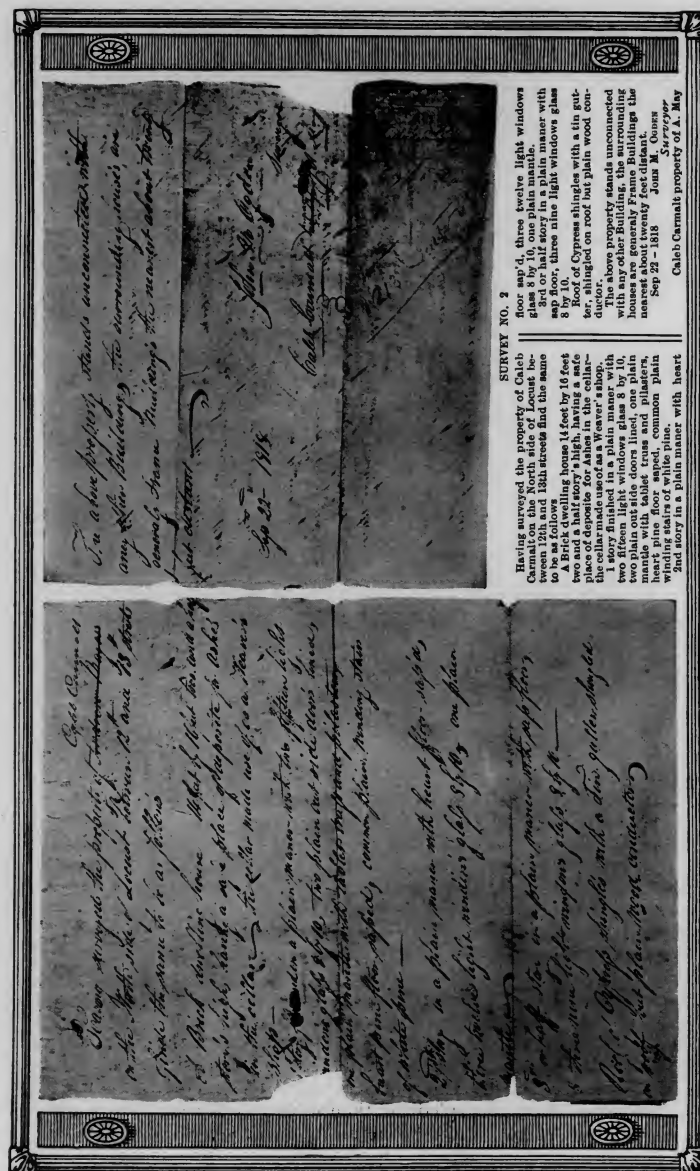 Caleb Carmalt
Having surveyed the property of
on the North side of Locust between 12th and 13th streets
find the same to be as follows
A Brick dwelling house 14 feet by 16 feet two and a half
story's high, having a safe place of deposite for Ashes
in the cellar the cellar made use of as a Weaver's
shop
1 story finished in a plain maner with two fifteen light
windows glass 8 by 10, two plain out side doors lined,
one plain mantle with tablet truss and pilasters,
heart pine floor saped, common plain winding stairs
of white pine
2nd story in a plain maner with heart floor sap'd,
three twelve light windows glass 8 by 10, one plain
mantle
3rd or half story in a plain maner with sap floor,
three nine light windows glass 8 by 10
Roof of Cypress shingles with a tin gutter shingled
on roof but plain wood conductor
The above property stands unconnected with
any other Building, the surrounding houses are
generaly Frame Buildings the nearest about twenty
feet distant
Sep 22 - 1818
John M. Ogden
Surveyor
Caleb Carmalt
SURVEY NO. 2
Having surveyed the property of Caleb
Carmalt on the North side of Locust be-
tween 12th and 13th streets find the same
to be as follows
A Brick dwelling house 14 feet by 16 feet
two and a half story's high, having a safe
place of deposite for Ashes in the cellar-
the cellar made use of as a Weaver's shop.
1 story finished in a plain maner with
two fifteen light windows glass 8 by 10,
two plain out side doors lined, one plain
mantle with tablet truss and pilasters,
heart pine floor saped, common plain
winding stairs of white pine.
2nd story in a plain maner with heart
floor sap'd, three twelve light windows
glass 8 by 10, one plain mantle.
3rd or half story in a plain maner with
sap floor, three nine light windows glass
8 by 10.
Roof of Cypress shingles with a tin gut-
ter, shingled on roof but plain wood con-
ductor.
The above property stands unconnected
with any other Building, the surrounding
houses are generaly Frame Buildings the
nearest about twenty feet distant.
Sep 22 - 1818 JOHN M. OGDEN
Surveyor
Caleb Carmalt property of A. May